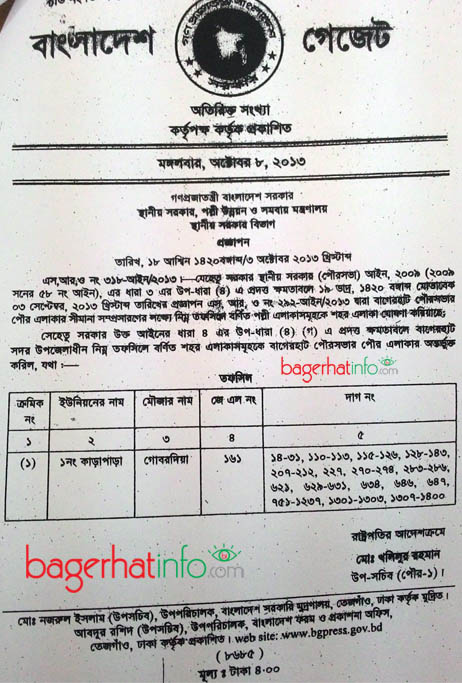 বাংলাদেশ গেজেট
অতিরিক্ত সংখ্যা
কর্তৃপক্ষ কর্তৃক প্রকাশিত
মঙ্গলবার, অক্টোবর ৮, ২০১৩
গণপ্রজাতন্ত্রী বাংলাদেশ সরকার
স্থানীয় সরকার, পল্লী উন্নয়ন ও সমবায় মন্ত্রণালয়
স্থানীয় সরকার বিভাগ
প্রজ্ঞাপন
তারিখ, ১৮ আশ্বিন ১৪২০বঙ্গাব্দ/৩ অক্টোবর ২০১৩ খ্রিস্টাব্দ
এস,আর,ও নং ৩১৮-আইন/২০১৩।—যেহেতু সরকার স্থানীয় সরকার (পৌরসভা) আইন, ২০০৯ (২০০৯
সনের ৫৮ নং আইন), এর ধারা ৩ এর উপ-ধারা (৪) এ প্রদত্ত ক্ষমতাবলে ১৯ ভাদ্র, ১৪২০ বঙ্গাব্দ মোতাবেক
০৩ সেপ্টেম্বর, ২০১৩ খ্রিস্টাব্দ তারিখের প্রজ্ঞাপন এস, আর, ও নং-২৯২-আইন/২০১৩ দ্বারা বাগেরহাট পৌরসভার
পৌর এলাকার সীমানা সম্প্রসারণের লক্ষ্যে নিম্ন তফসিলে বর্ণিত পল্লী এলাকাসমূহকে শহর এলাকা ঘোষণা করিয়াছে;
সেহেতু সরকার উক্ত আইনের ধারা ৪ এর উপ-ধারা (৪) (গ) এ প্রদত্ত ক্ষমতাবলে বাগেরহাট
সদর উপজেলাধীন নিম্ন তফসিলে বর্ণিত শহর এলাকাসমূহকে বাগেরহাট পৌরসভার পৌর এলাকার অন্তর্ভুক্ত
করিল, যথা :—
bagerhatinfo.com
তফসিল
ক্রমিক নং ইউনিয়নের নাম মৌজার নাম জে এল নং দাগ নং
১ ২ ৩ ৪ ৫
(১) ১নং কাড়াপাড়া গোবরদিয়া ১৬১ ১৪-৩১, ১১০-১১৩, ১১৫-১২৬, ১২৮-১৪৩,
২০৭-২১২, ২২৭, ২৭০-২৭৪, ২৮৩-২৮৬,
৬২১, ৬২৯-৬৩১, ৬৩৪, ৬৪৬, ৬৪৭,
৭৫১-১২৩৭, ১৩০১-১৩০৩, ১৩০৭-১৪০০
রাষ্ট্রপতির আদেশক্রমে
মোঃ খলিলুর রহমান
উপ-সচিব (পৌর-১)।
bagerhatinfo.com
মোঃ নজরুল ইসলাম (উপসচিব), উপপরিচালক, বাংলাদেশ সরকারি মুদ্রণালয়, তেজগাঁও, ঢাকা কর্তৃক মুদ্রিত।
আবদুর রশিদ (উপসচিব), উপপরিচালক, বাংলাদেশ ফরম ও প্রকাশনা অফিস,
তেজগাঁও, ঢাকা কর্তৃক প্রকাশিত। web site: www.bgpress.gov.bd
(৮৬৮৫)
মূল্য : টাকা ৪.০০